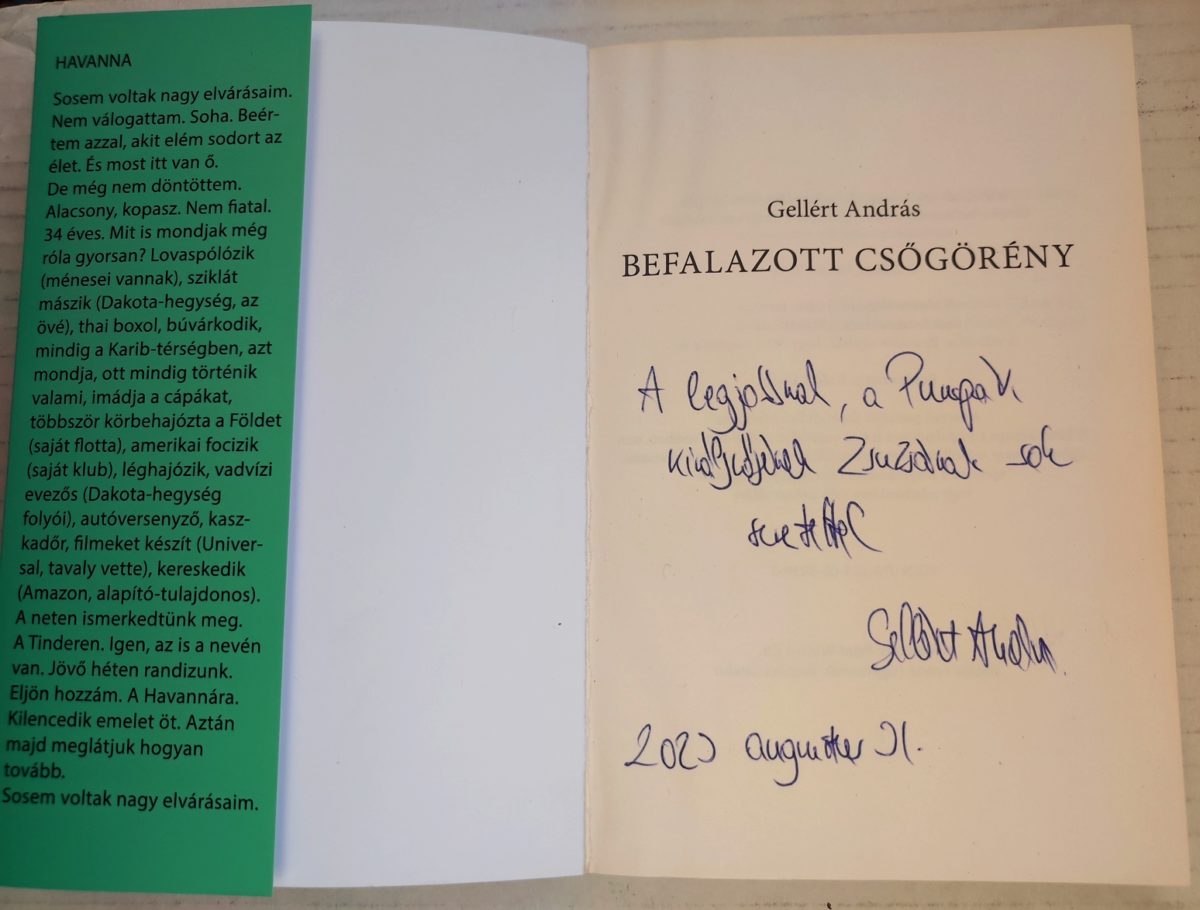 HAVANNA
Sosem voltak nagy elvárásaim.
Nem válogattam. Soha. Beér-
tem azzal, akit elém sodort az
élet. És most itt van ő.
De még nem döntöttem.
Alacsony, kopasz. Nem fiatal.
34 éves. Mit is mondjak még
róla gyorsan? Lovaspólózik
(ménesei vannak), sziklát
mászik (Dakota-hegység, az
övé), thai boxol, búvárkodik,
mindig a Karib-térségben, azt
mondja, ott mindig történik
valami, imádja a cápákat,
többször körbehajózta a Földet
(saját flotta), amerikai focizik
(saját klub), léghajózik, vadvízi
evezős (Dakota-hegység
folyói), autóversenyző, kasz-
kadőr, filmeket készít (Univer-
sal, tavaly vette), kereskedik
(Amazon, alapító-tulajdonos).
A neten ismerkedtünk meg.
A Tinderen. Igen, az is a nevén
van. Jövő héten randizunk.
Eljön hozzám. A Havannára.
Kilencedik emelet öt. Aztán
majd meglátjuk hogyan
tovább.
Sosem voltak nagy elvárásaim.
Gellért András
BEFALAZOTT CSŐGÖRÉNY
A legjobbnak, a
királynőjének Zsuzsának sok
szeretettel
Gellért András
augusztus 31.